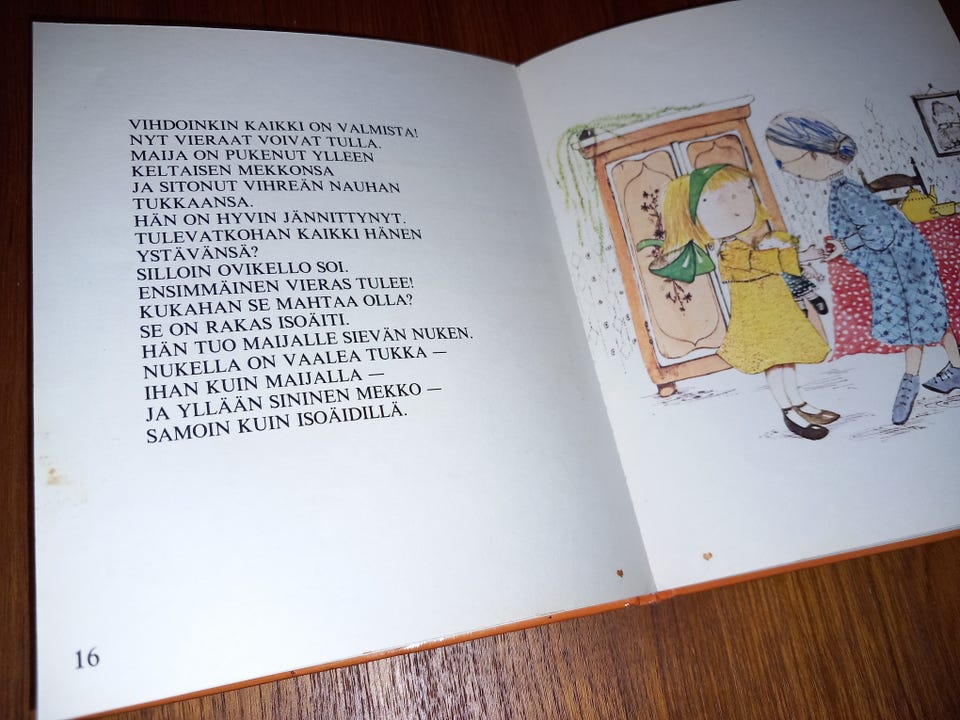 VIHDOINKIN KAIKKI ON VALMISTA!
NYT VIERAAT VOIVAT TULLA.
MAIJA ON PUKENUT YLLEEN
KELTAISEN MEKKONSA
JA SITONUT VIHREÄN NAUHAN
TUKKAANSA.
HÄN ON HYVIN JÄNNITTYNYT.
TULEVATKOHAN KAIKKI HÄNEN
YSTÄVÄNSÄ?
SILLOIN OVIKELLO SOI.
ENSIMMÄINEN VIERAS TULEE!
KUKAHAN SE MAHTAA OLLA?
SE ON RAKAS ISOÄITI.
HÄN TUO MAIJALLE SIEVÄN NUKEN.
NUKELLA ON VAALEA TUKKA —
IHAN KUIN MAIJALLA —
JA YLLÄÄN SININEN MEKKO —
SAMOIN KUIN ISOÄIDILLÄ.
16